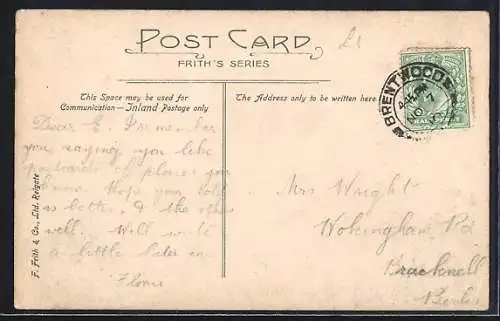 POST CARD
FRITH'S SERIES
This Space may be used for
Communication—Inland Postage only
The Address only to be written here
Dear E. I remember
you saying you like
postcards of places you
know. Hope you cold
is better, & the others
well. Will write
a little later on
Florrie
F. Frith & Co., Ltd. Reigate
BRENTWOOD
NO 7
Mrs Wright
Wokingham Rd
Bracknell
Berks